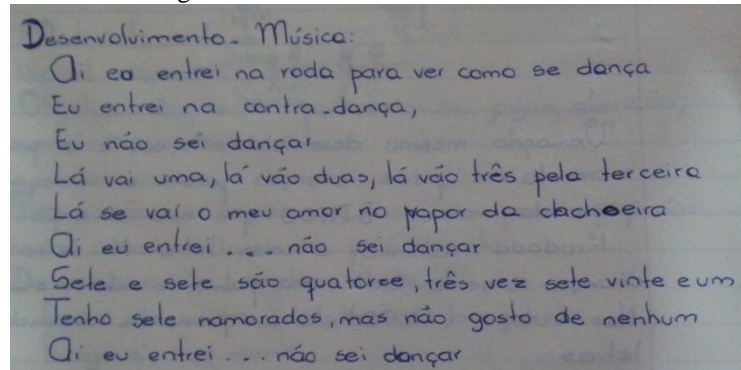 Desenvolvimento - Música:
Ai eo entrei na roda para ver como se dança
Eu entrei na contra-dança,
Eu não sei dançar
Lá vai uma, lá vão duas, lá vão três pela terceira
Lá se vai o meu amor no vapor da cachoeira
Ai eu entrei ... não sei dançar
Sete e sete são quatorze, três vez sete vinte e um
Tenho sete namorados, mas não gosto de nenhum
Ai eu entrei ... não sei dançar